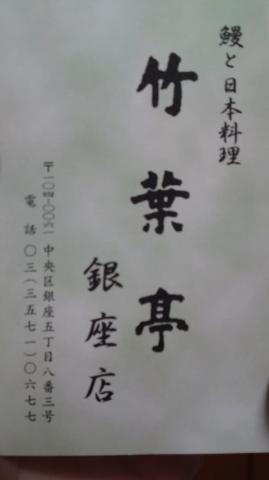 鰻と日本料理
竹葉亭
銀座店
〒一〇四-〇〇六一 中央区銀座五丁目八番三号
電話 〇三(三五七一)〇六七七